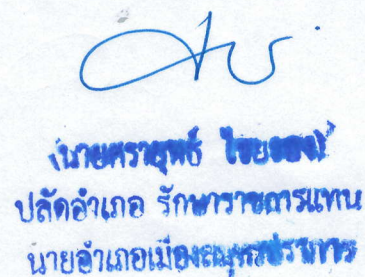 (นายศรายุทธ์
ปลัดอำเภอ รักษาราชการแทน
นายอำเภอเมืองสมุทรปราการ